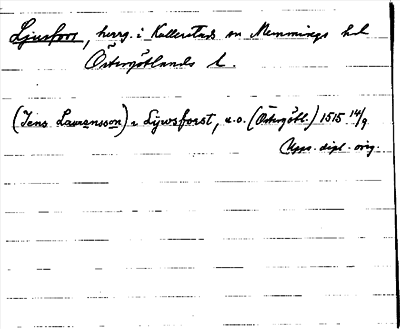 Ljusfors, herrg. i Kullerstads sn Memmings hd
Östergötlands l.
(Jens Laurensson) i Lywsforst, u.o. (Östergötl.) 1515 14/9
Upps. dipl. orig.